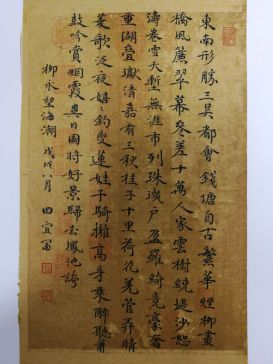 東南形勝三吳都會錢塘自古繁華煙柳畫
橋風簾翠幕參差十萬人家雲樹繞堤沙怒
濤卷雪天塹無涯市列珠璣戶盈羅綺競豪奢
重湖疊巘清嘉有三秋桂子十里荷花羌管弄晴
菱歌泛夜嬉嬉釣叟蓮娃千騎擁高牙乘醉聽簫
鼓吟賞烟霞異日圖將好景歸去鳳池誇
柳永望海潮 戊戌八月 田宜